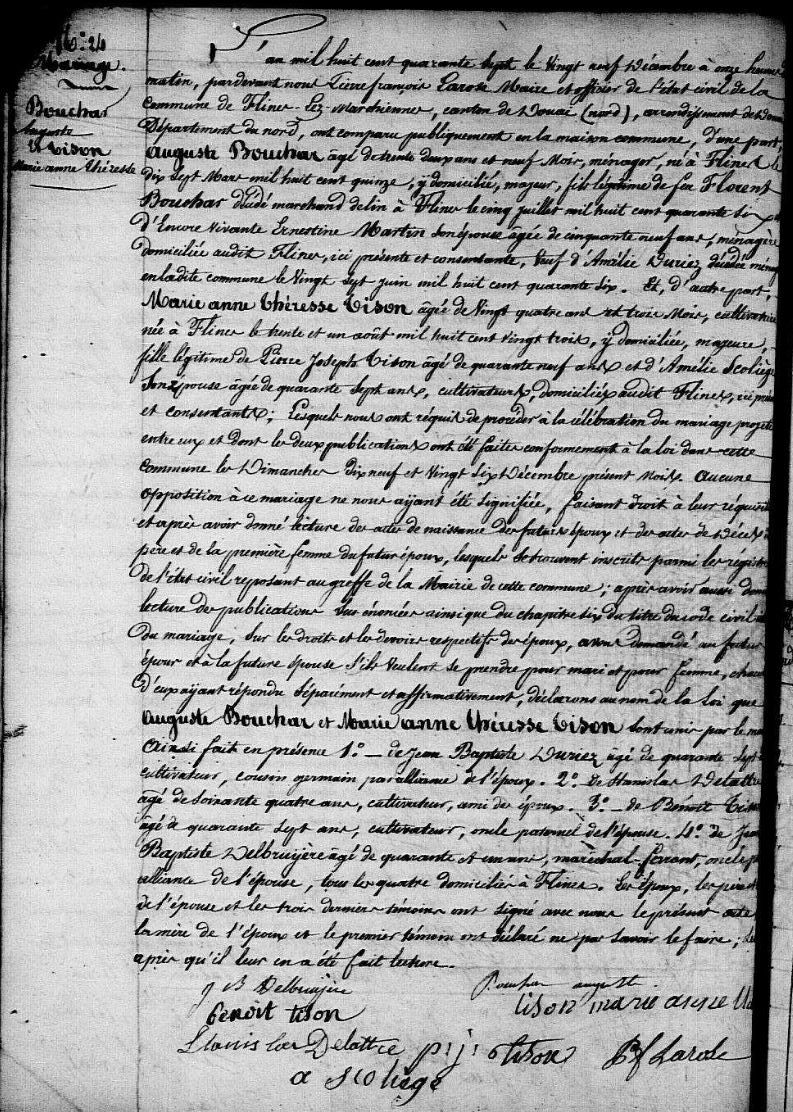 N.° 24
Mariage.
Bouchar
auguste
et Tison
Marie anne théresse
L'an mil huit cent quarante sept le vingt neuf Décembre à onze heures
matin, pardevant nous Pierre françois Larose Maire et officier de l'état civil de la
Commune de Flines-Lez-Marchiennes, canton de Douai (nord), arrondissement de Douai
Département du nord, ont comparu publiquement en la maison commune, d'une part,
Auguste Bouchar âgé de trente deux ans et neuf Mois, ménager, né à Flines le
dix sept Mars mil huit cent quinze, y domicilié, majeur, fils légitime de feu Florent
Bouchar décédé marchand de lin à Flines le cinq juillet mil huit cent quarante six, et
d'Encore vivante Ernestine Martin son épouse âgée de cinquante neuf ans, ménagère
domiciliée audit Flines, ici présente et consentante, Veuf d'Amélie Duriez décédée ménag
en ladite commune le Vingt sept juin mil huit cent quarante six. Et, d'autre part,
Marie anne théresse tison âgée de Vingt quatre ans et trois Mois, cultivatrice
née à Flines le trente et un août mil huit cent vingt trois, y domiciliée, majeure,
fille légitime de Pierre Joseph tison âgé de quarante neuf ans et d'Amélie Scoliège
son épouse âgée de quarante sept ans, cultivateurs, domiciliés audit Flines, ici prés
et consentants; Lesquels nous ont réquis de procéder à la célébration du mariage projeté
entre eux et dont les deux publications ont été faites conformement à la loi dans cette
commune les Dimanches dix neuf et vingt six Décembre présent Mois. aucune
opposition à ce mariage ne nous ayant été signifiée, faisant droit à leur réquisit
et après avoir donné lecture des actes de naissance des futurs époux et des actes de Décès d
père et de la première femme du futur époux, lesquels se trouvent inscrits parmi les régistr
de l'état civil reposant au greffe de la Mairie de cette commune; après avoir aussi donn
lecture des publications sus énoncées ainsi que du chapitre six du titre du code civil
du mariage, sur les droits et les devoirs respectifs des époux, avons demandé au futur
époux et à la future épouse s'ils veulent se prendre pour mari et pour femme, chacu
d'eux ayant répondu séparément et affirmativement, déclarons au nom de la loi que
auguste Bouchar et Marie anne théresse tison sont unis par le ma
Ainsi fait en présence 1.° de Jean Baptiste Duriez âgé de quarante sept
cultivateur, cousin germain par alliance de l'époux. 2.° De Stanislas Delattre
âgé de soixante quatre ans, cultivateur, ami des époux. 3.° de Benoit tis
âgé de quarante sept ans, cultivateur, oncle paternel de l'épouse. 4.° de Jean
Baptiste Delbruyère âgé de quarante et un ans, maréchal-ferrant, oncle p
alliance de l'épouse, tous les quatre domiciliés à Flines. Les époux, les père et
de l'épouse et les trois derniers témoins ont signé avec nous le présent acte
la mère de l'époux et le premier témoin ont déclaré ne pas savoir le faire;
après qu'il leur en a été fait lecture.
j B Delbruyère
Bouchar auguste
Benoit tison
tison marie anne
Stanis las Delattre
p. j. tison
P f Larose
a scoliège